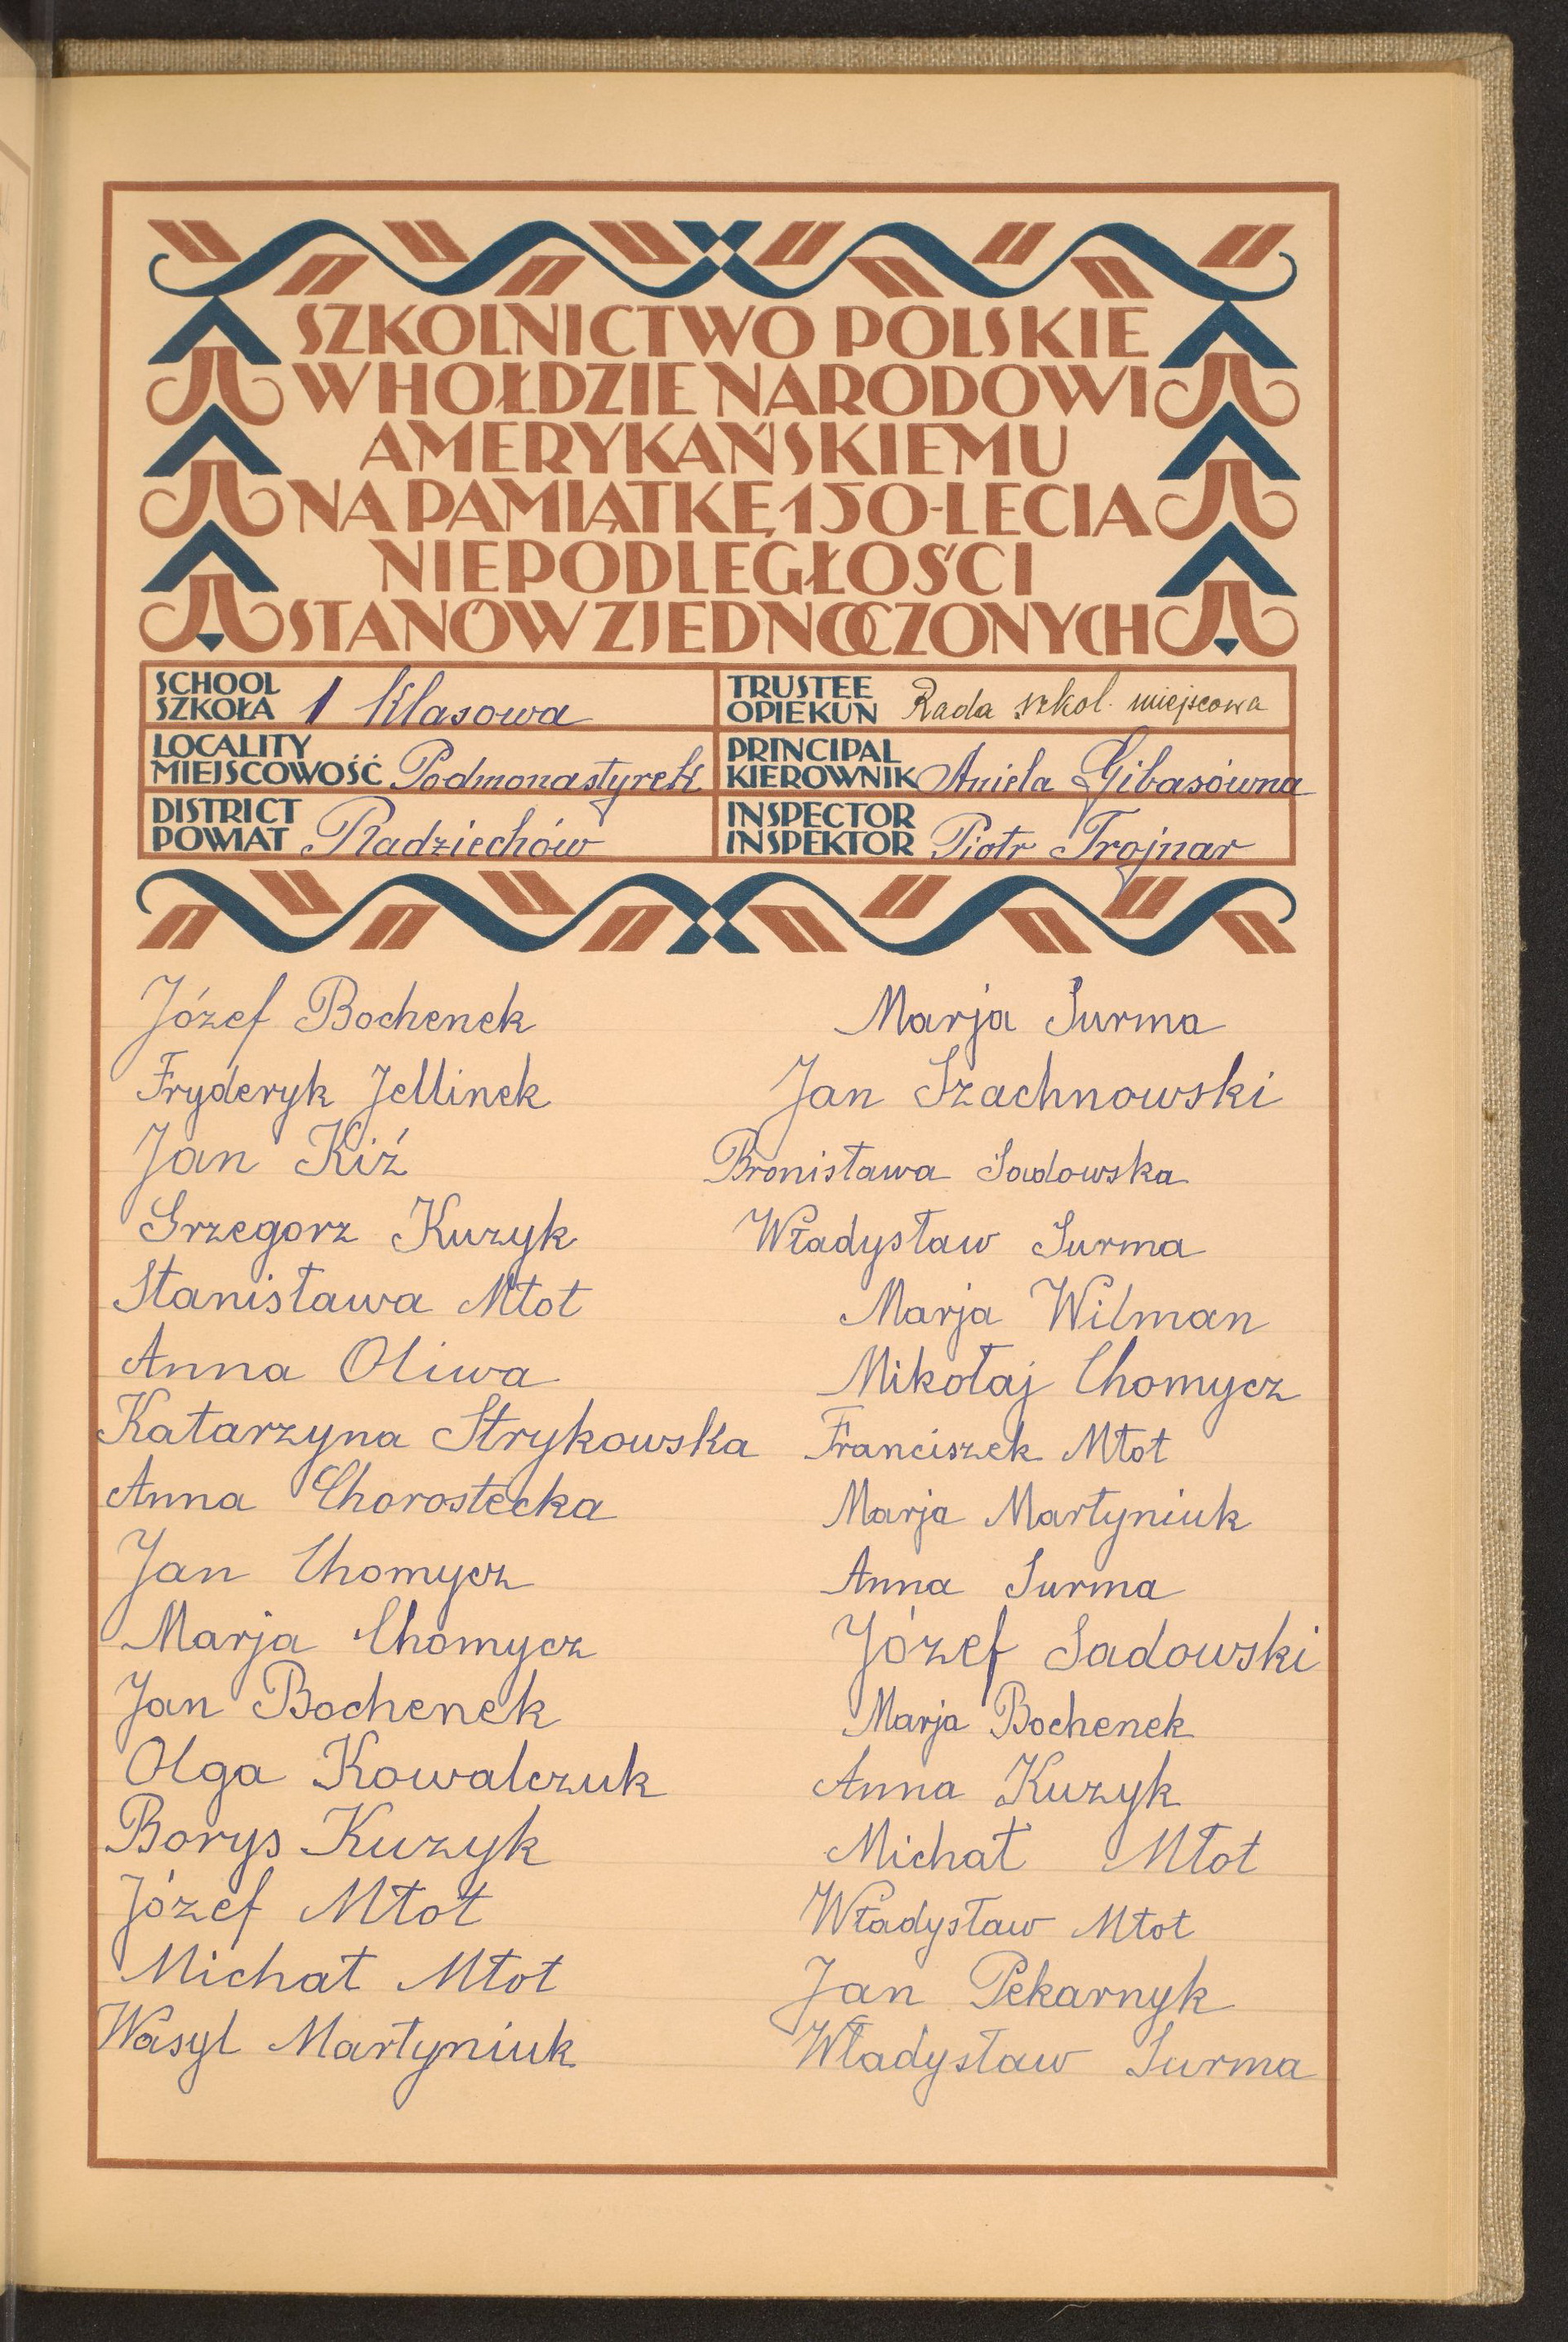 SZKOLNICTWO POLSKIE
W HOŁDZIE NARODOWI
AMERYKAŃSKIEMU
NA PAMIĄTKĘ 150-LECIA
NIEPODLEGŁOŚCI
STANÓW ZJEDNOCZONYCH
SCHOOL
SZKOŁA 1 klasowa
LOCALITY
MIEJSCOWOŚĆ Podmonastyrek
DISTRICT
POWIAT Radziechów
TRUSTEE
OPIEKUN Rada szkol. miejscowa
PRINCIPAL
KIEROWNIK Aniela Gibasówna
INSPECTOR
INSPEKTOR Piotr Trojnar
Józef Bochenek
Fryderyk Jellinek
Jan Kiź
Grzegorz Kuzyk
Stanisława Młot
Anna Oliwa
Katarzyna Strykowska
Anna Chorostecka
Jan Chomycz
Marja Chomycz
Jan Bochenek
Olga Kowalczuk
Borys Kuzyk
Józef Młot
Michał Młot
Wasyl Martyniuk
Marja Surma
Jan Szachnowski
Bronisława Sadowska
Władysław Surma
Marja Wilman
Mikołaj Chomycz
Franciszek Młot
Marja Martyniuk
Anna Surma
Józef Sadowski
Marja Bochenek
Anna Kuzyk
Michał Młot
Władysław Młot
Jan Pekarnyk
Władysław Surma